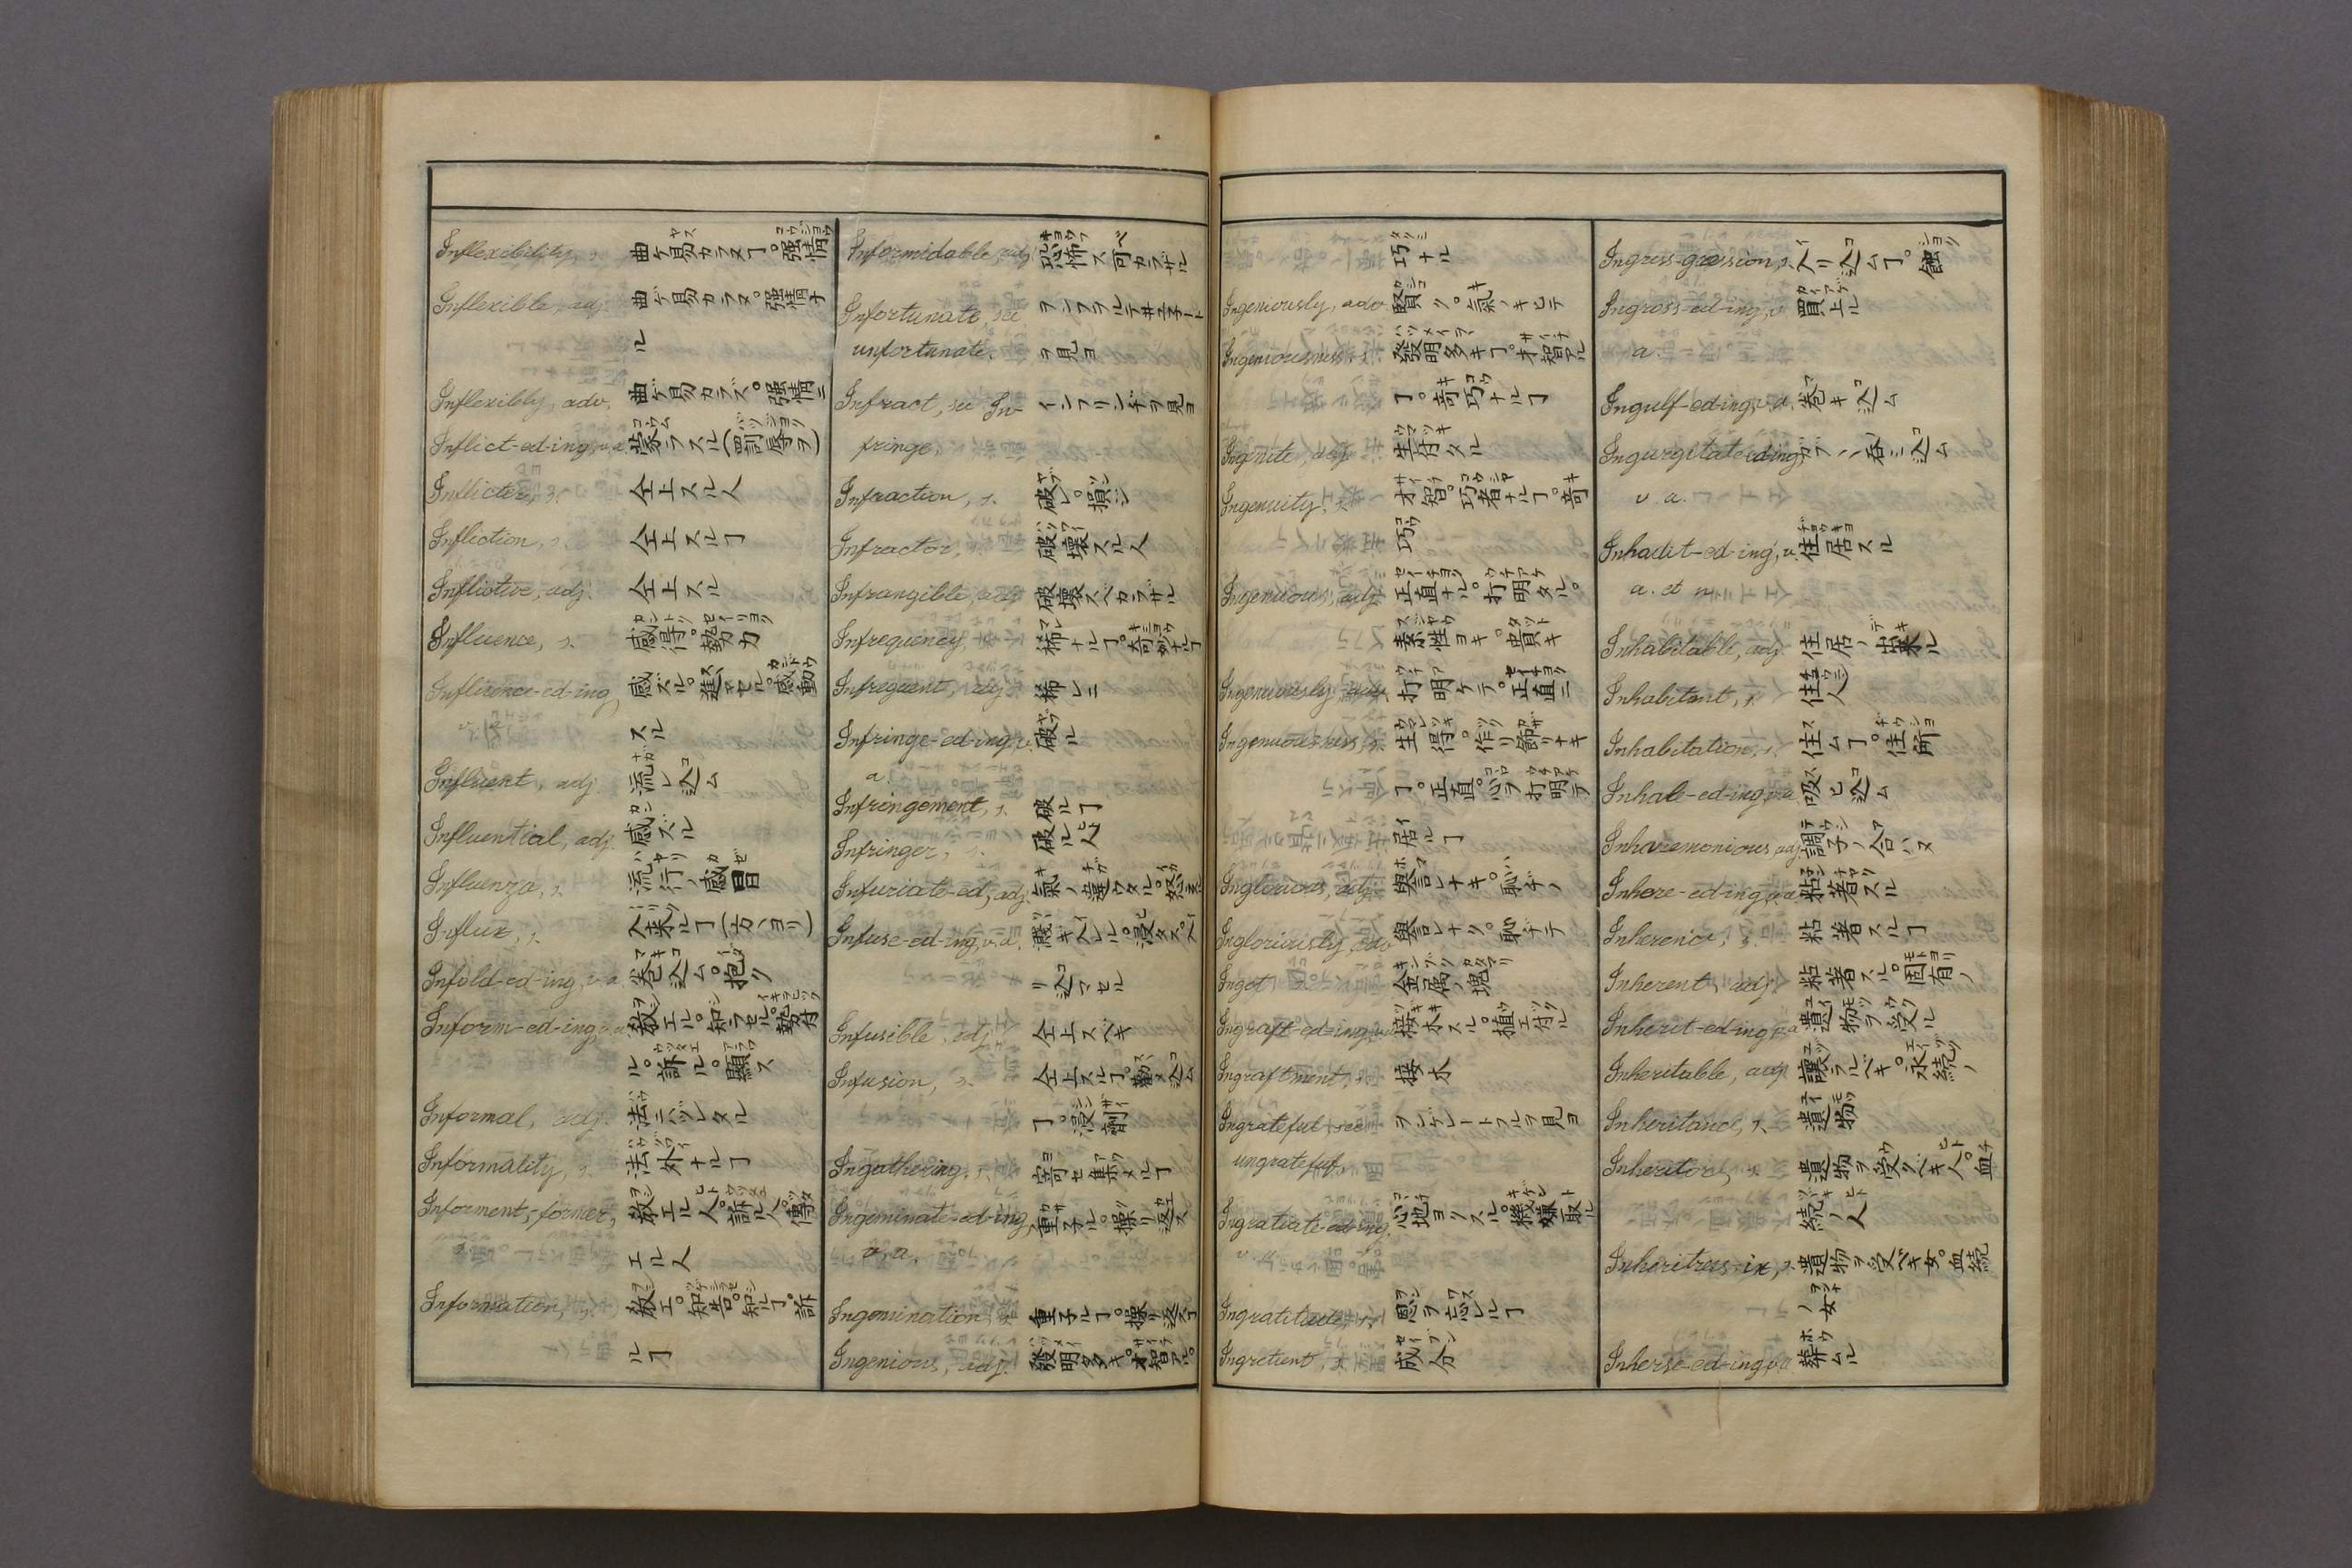 Inflexibility, s. 曲ゲ易カラヌヿ。強情
Inflexible, adj. 曲ゲ易カラヌ。強情ナ
ル
Inflexibly, adv. 曲ゲ易カラズ。強情ニ
Inflict-ed-ing, v.a. 蒙ラスル(罰辱ヲ)
Inflicter, s. 仝上スル人
Infliction, s. 仝上スルヿ
Inflictive, adj. 仝上スル
Influence, s. 感得。勢力
Influence-ed-ing, 感ズル。進マセル。感動
スル
Influent, adj. 流レ込ム
Influential, adj. 感ズル
Influenza, s. 流行ノ感冒
Influx, s. 入来ルヿ
Infold-ed-ing, v.a. 巻込ム。抱ク
Inform-ed-ing, v.a. 教エル。知ラセル。勢付
ル。訴ル。顕ス
Informal, adj. 法ニハヅレタル
Informality, s. 法外ナルヿ
Informent, -former, 教エル人。訴ル人。傳
s. エル人
Information, s. 教エ。知告。知ルヿ。訴
ルヿ
Informidable, adj. 恐怖ス可カラザル
Infortunate, see
unfortunate. ヲ見ヨ
Infract, see In- インフリンヂヲ見ヨ
fringe.
Infraction, s. 破レ。損シ
Infractor, 破壊スル人
Infrangible, adj. 破壊スベカラザル
Infrequency, 稀ナルヿ。奇妙ナルヿ
Infrequent, adj. 稀レニ
Infringe-ed-ing, v. 破ル
a.
Infringement, s. 破ルヿ
Infringer, s. 破ル人
Infuriate-ed, adj. 氣ノ違ウタル。怒
Infuse-ed-ing, v.a. 濺キ入レル。浸ス。入
リ込マセル
Infusible, adj. 仝上スベキ
Infusion, s. 仝上スルヿ。勸メ込ム
ヿ。浸剤
Ingathering, s. 寄セ集メルヿ
Ingeminate-ed-ing, 重子ル。操リ返ス
v.a.
Ingemination, 重子ルヿ。操リ返スヿ
Ingenious, adj. 發明多キ。才智アル。
巧ナル
Ingeniously, adv. 賢ク。氣ノキヒテ
Ingeniousness, s. 發明多キヿ。才智アル
ヿ。奇巧ナルヿ
Ingenite, adj. 生付タル
Ingenuity, 才智。巧者ナルヿ。奇
巧
Ingenuous, adj. 正直ナル。打明タル。
素性ヨキ。貴キ
Ingenuously, adv. 打明ケテ。正直ニ
Ingenuousness, s. 生得。作リ飾リナキ
ヿ。正直。心ヲ打明テ
居ルヿ
Inglorious, adj. 譽レナキ。恥ヂノ
Ingloriously, adv. 譽レナク。恥ヂテ
Ingot 金属ノ塊
Ingraft-ed-ing, v.a. 接木スル。植エ付ル
Ingraftment, s. 接木
Ingrateful see ヲンゲレートフルヲ見ヨ
ungrateful,
Ingratiate-ed-ing, 心地ヨクスル。機嫌取ル
Ingratitude, s. 恩ヲ忘レルヿ
Ingretient, s. 成分
Ingress-gression, s. 入リ込ムヿ。蝕
Ingross-ed-ing, v. 買上ル
a.
Ingulf-ed-ing, v.a. 巻キ込ム
Ingurgitate-ed-ing, ガブ〳〵呑ミ込ム
v. a.
Inhadit-ed-ing, v. 住居スル
a. et n.
Inhabitable, adj. 住居ノ出来ル
Inhabitant, s. 住人
Inhabitation, s. 住ムヿ。住所
Inhale-ed-ing, v.a. 吸ヒ込ム
Inharemonious, adj. 調子ノ合ハヌ
Inhere-ed-ing, v.a. 粘着スル
Inherence, s. 粘着スルヿ
Inherent, adj. 粘着スル。固有ノ
Inherit-ed-ing, v.a. 遺物ヲ受ル
Inheritable, adj. 讓ラルベキ。永続ノ
Inheritance, s. 遺物
Inheritor, s. 遺物ヲ受クベキ人。血
続ノ人
Inheritress-ix, s. 遺物ヲ受ベキ女。血続
ノ女
Inherse-ed-ing, v.a. 葬ムル